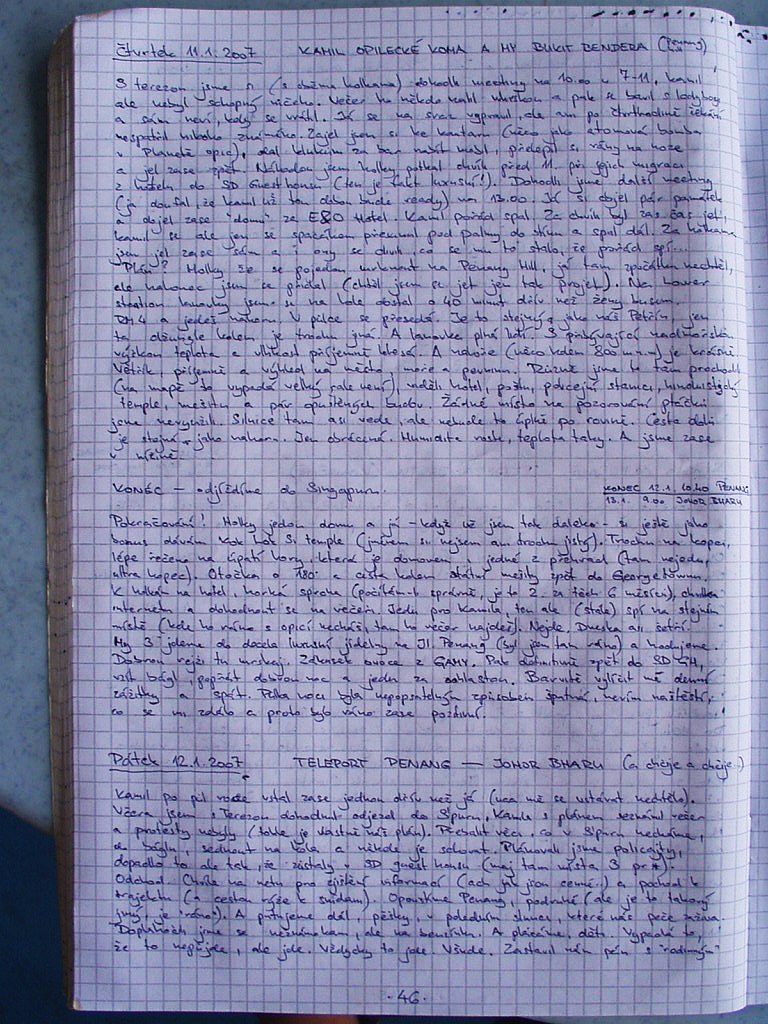 Čtvrtek 11.1.2007 KAMIL OPILECKÉ KOMA A MY BUKIT BENDERA (Penang)
S terezou jsme si (s oběma holkama) dohodli meeting na 10.00 u 7-11, kamil
ale nebyl schopný ničeho. Večer ho někdo a pak se bavil s ladyboy
a sám neví, kdy se vrátil. Já se na sraz vypravil, ale ani po čtvrthodině čekání
nespatřil nikoho známého. Zajel jsem si ke kantam (něco jako atomová bomba
v Planetě opic), dal klukům za bar, přelepil si rány na noze
a jel zase zpět. Náhodou jsem holky potkal chvíli před 11, při jejich migraci
z hotelu do SD Guesthousu (ten je fakt luxusní!). Dohodli jsme další meeting
(já doufal, že kamil už tou dobou bude ready) na 13.00. Já si objel pár památek
a dojel zase "domů" za E&O Hotel. Kamil pořád spal. Za chvíli byl zas čas jet,
kamil se ale jen se spacákem přesunul pod palmy do stínu a spal dál. Za holkama
jsem jel zase sám a i ony se divily, co se mu to stalo, že pořád spí...
Plán? Holky že se pojedou mrknout na Penang Hill, já tam zpočátku nechtěl,
ale nakonec jsem se přidal (chtěl jsem se jet jen tak projet). Na lower
station lanovky jsem si na kole dostal o 40 minut dřív než ženy busem.
RM4 a jedeš nahoru. V půlce se přesedá. Je to stejný jako náš Petřín, jen
ta džungle kolem je trochu jiná. A lanovka plná lidí. S přibývající nadmořskou
výškou teplota a vlhkost příjemně klesá. A nahoře (něco kolem 800 m.n.m) je krásně.
Větřík, příjemně a výhled na město, moře a pevninu. Různě jsme to tam prochodili
(na mapě to vypadá velký, ale není), viděli hotel, poštu, policejní stanici, hinduistický
temple, mešitu a pár opuštěných budov. Žádné místo na pozorování ptáčků
jsme nevyužili. Silnice tam asi vede, ale nebude to úplně po rovině. Cesta dolů
je stejná jako nahoru. Jen obráceně. Humidita roste, teplota taky. A jsme zase
v nížině.
KONEC – odjíždíme do Singapuru. KONEC 12.1. 10.40 PENANG
13.1. 9.00 JOHOR BHARU
Pokračování! Holky jedou domů a já – když už jsem tak daleko – si ještě jako
bonus dávám Kek Lok Si temple (jménem si nejsem ani trochu jistý). Trochu na kopci,
lépe řečeno na úpatí hory, která je domovem i jedné z přehrad (tam nejedu,
ultra kopec). Otočka o 180° a cesta kolem státní mešity zpět do Georgetownu.
K holkám na hotel, horká sprcha (počítám-li správně, je to 2. za těch 6 měsíců), chvilka
internetu a dohodnout se na večeři. Jedu pro Kamila, ten ale (stále) spí na stejném
místě (kde ho ráno s opicí necháš, tam ho večer najdeš). Nejde. Dneska asi šetří.
My 3 jdeme do docela luxusní jídelny na Jl. Penang (byl jsem tam ráno) a hodujeme.
Dobrou rejži tu mívají. Zákusek ovoce z GAMY. Pak definitivně zpět do SD GH,
vzít bágl, popřát dobrou noc a jedu za ochlastou. Barvitě vylíčit mé denní
zážitky a spát. Půlka noci byla nepopsatelným způsobem špatná, nevím naštěstí,
co se mi zdálo a proto bylo ráno zase pozitivní.
Pátek 12.1.2007 TELEPORT PENANG — JOHOR BHARU (a chčije a chčije..)
Kamil po půl roce vstal zase jednou dřív než já (uaa mě se vstávat nechtělo).
Včera jsem s Terezou dohodnul odjezd do Sipuru, Kamila s plánem seznámil večer
a protesty nebyly (tohle je vlastně náš plán). Přebalit věci, co v Sipuru necháme,
do báglu, sednout na kola a někde je schovat. Plánovali jsme policajty,
dopadlo to ale tak, že zůstaly v SD guest housu (maj tam místa 3 pr*).
Odchod. Chvíle na netu pro zjištění informací (ach jak jsou cenné..) a pochod k
trajektu (a cestou rejže k snídani). Opouštíme Penang, podruhé (ale je to takový
jiný, je ráno). A putujeme dál, pěšky, v poledním slunci, které nás peče zaživa.
Doplahočili jsme se neznámokam, ale na benzínku. A pláčeme, děti. Vypadá to,
že to nepůjde, ale jde. Vždycky to jde. Všude. Zastavil nám pán s "rodinným"
-46-